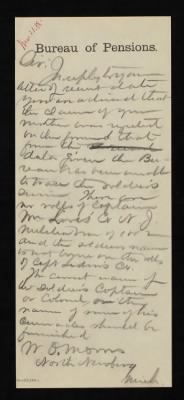 Bureau of Pensions.
Sir:
In reply to your
letter of recent date
you are advised that
the claim of your
mother was rejected
on the ground that
from the
data given the Bu-
reau has been unable
to trace the soldier's
service. There are
no rolls of Captain
Wm Lord's Co. N. J.
Militia War of
and the soldier's name
is not borne on the rolls
of Capt
The correct name of
the Soldier's Captain
or Colonel, or the
names of some of his
comrades should be
furnished
W. E. Morris
North Newburg
Mich